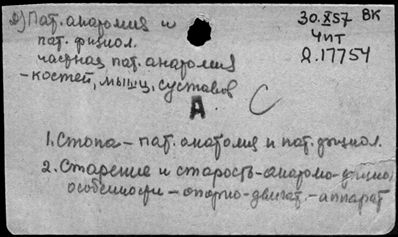 2) Пат. анатомия и
пат. физиол.
частная пат. анатомия
- костей, мышц, суставов
30.X57 ВК
Чит
Д.17754
А
С
1. Стопа - пат. анатомия и пат. физиол.
2. Старение и старость - анатомо-физиол.
особенности - опорно-двигат. - аппарат